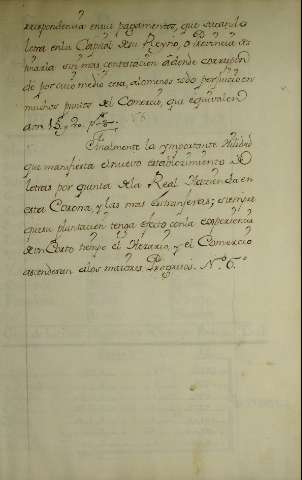 respondencia en sus pagamentos, que sacando
letra en la Capital de su Reyno, o
sin mas contestacion a donde
de por cuio medio cesa, alomenos todo perjuicio en
muchos puntos del Comercio, que equivalen
a on 15 y 20 p%
Finalmente la ymportante utilidad
que manifiesta el nuevo establecimiento de
letras por quenta de la Real Hacienda en
esta Corona, y las mas Extranjeras; siempre
que su plantacion tenga efecto con la experiencia
de un Corto tiempo el Herario, y el Comercio
ascenderan a los maiores Progresos. N.º 6.º